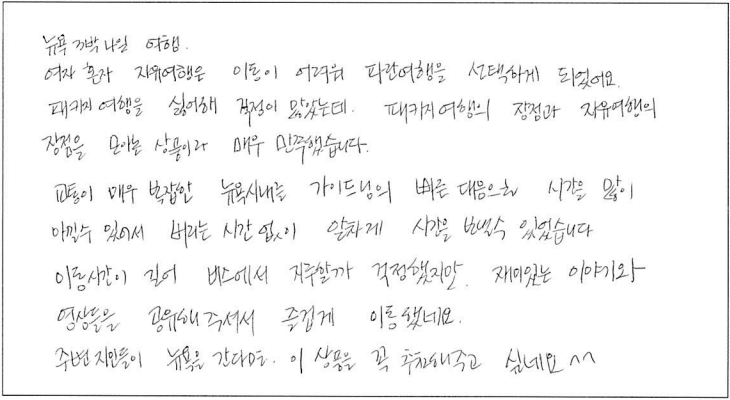 뉴욕 3박 4일 여행.
여자 혼자 자유여행은 이동이 어려워 파란여행을 선택하게 되었어요.
패키지 여행을 싫어해 걱정이 많았는데. 패키지여행의 장점과 자유여행의
장점을 모아놓은 상품이라 매우 만족했습니다.
교통이 매우 복잡한 뉴욕시내를 가이드님의 빠른 대응으로 시간을 많이
아낄수 있어서 버리는 시간 없이 알차게 시간을 보낼수 있었습니다
이동시간이 길어 버스에서 지루할까 걱정했지만. 재미있는 이야기와
영상들을 공유해주셔서 즐겁게 이동했네요.
주변 지인들이 뉴욕을 간다면. 이 상품을 꼭 추천해주고 싶네요 ^^